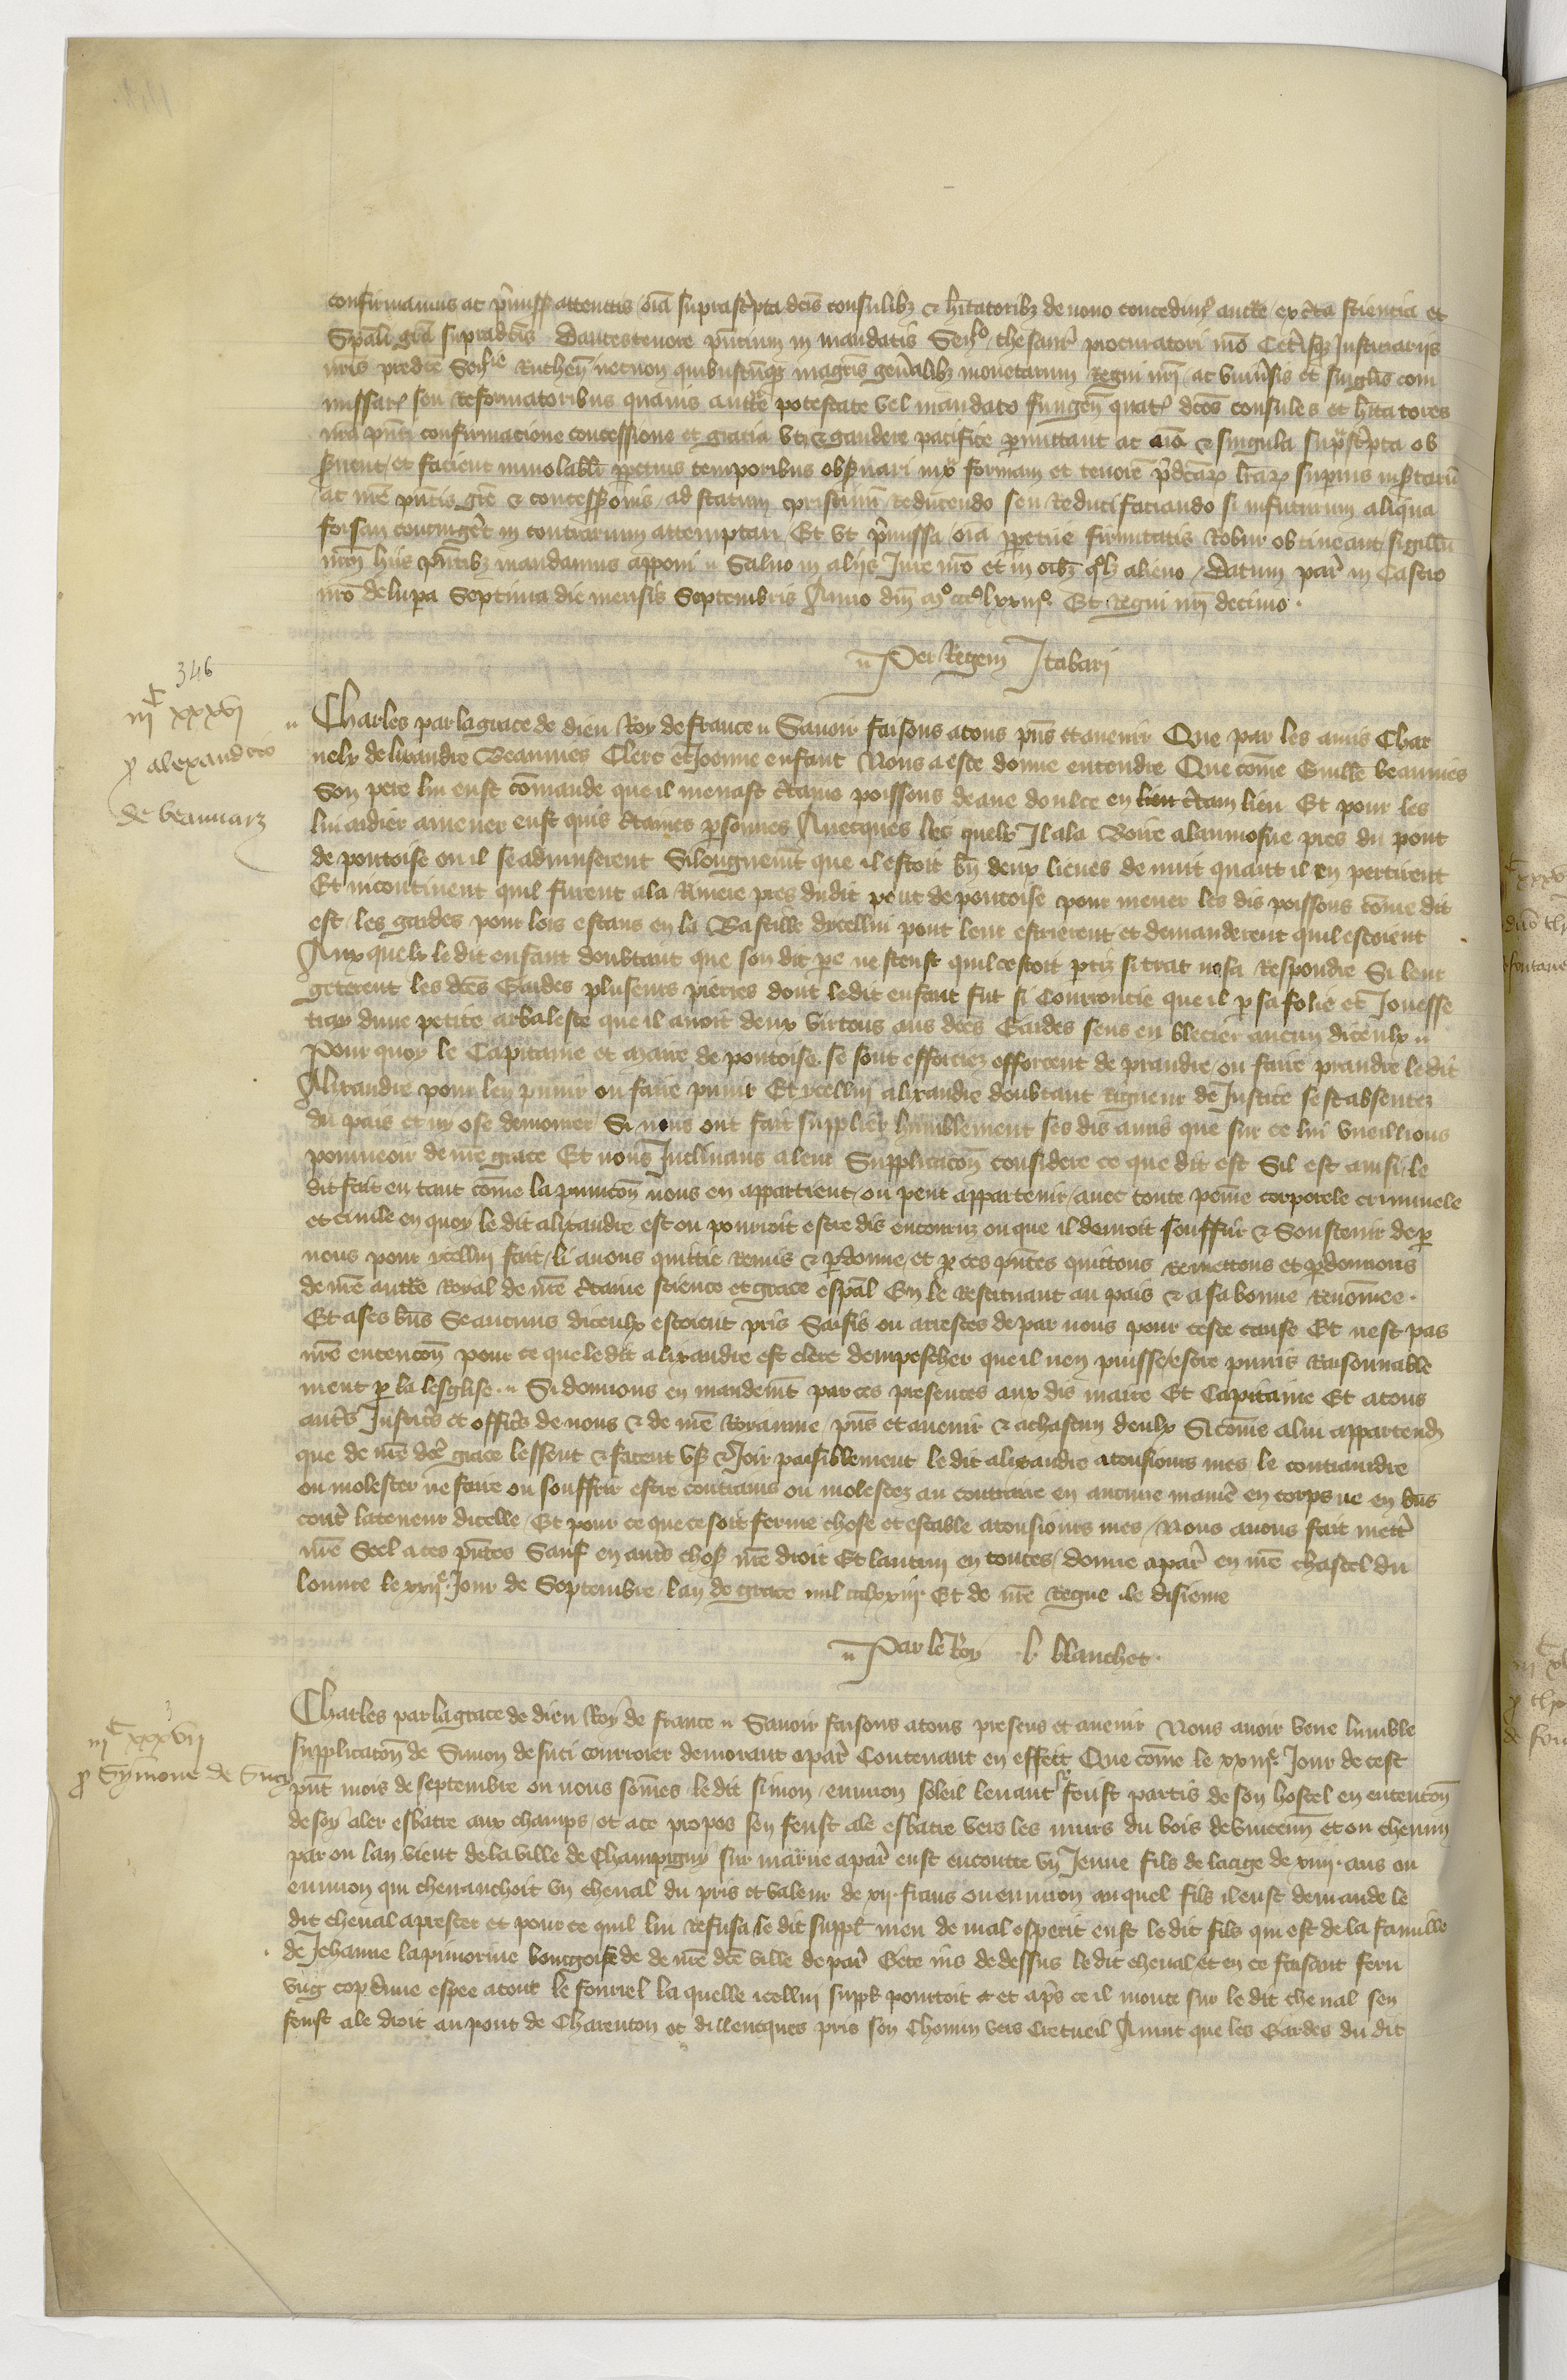 confirmamus ac p̃miss attentis oĩa suprasc̃pta dc̃is consulibꝫ & hĩtatoribꝫ de novo concedimꝰ auctẽ ex c̃ta sciencia et
Sp̃ali gr̃a supradc̃is Dantes tenore pñtium in mandatis Senꝰ thesaur̃ procuratori nr̃o Cet̃isqꝫ Justiciariis
nr̃is predc̃e Senꝰ Ruthen̄ necnon quibuscũqꝫ magr̃is gen̄alibꝫ monetarum Regni nr̃i ac uniṽsis et singl̃is com
missar̃ seu Reformatoribus quavis auctẽ potestate vel mandato fungen̄ quatꝰ dc̃os consules et hĩtatores
nr̃a pñti confirmacione concessione et gracia uti & gaudere pacifice p̱mittant ac oĩa & singula sup̃sc̃pta ob
s̃vent et faciant inviolabil̃r p̱petuis temporibus obs̃vari iux̃ formam et tenorẽ p̃dc̃aꝝ lr̃aꝝ superius insertaꝝ
ac nr̃e pñtis gr̃e & concessionis ad statum pristinũ Reducendo seu Reduci faciendo si infuturum aliqua
forsan contingẽt in contrarium attemptari Et ut p̃missa oĩa p̱petue firmitatis Robur obtineant sigillũ
nr̃m hiis pñtibꝫ mandamus apponi Salvo in aliis Jure nr̃o et in oĩbꝫ qᵒlꝫ alieno Datum par̃ in Castro
nr̃o de lupa Septima die mensis Septembris Anno dñi mᵒ cccᵒ lxxiiiᵒ Et Regni nr̃i decimo
Per Regem J tabari
346
iijᶜ xxxvj
ꝓ alexandro
de beaumarz
Charles par la grace de dieu Roy de france Savoir faisons a tous pñs et avenir Que par les amis Char
nelx de lixandre Beaumes Clerc et Joenne enfant Nous a este donne entendre Que cõme Guille beaumes
Son pere lui eust cõmande que il menast c̃tains poissons deaue doulce en c̃tain lieu Et pour les
lui aidier amener eust quis c̃taines p̱sonnes Avecques les quelx Il ala Boire a laumosne pres du pont
de pontoise ou il se adinserent Si longuemẽt que il estoit bñ deux lieues de nuit quant il en pertirent
Et incontinent quil furent a la Riviere pres dudit pont de pontoise pour mener les dis poissons cõme dit
est les gardes pour lors estans en la Bastille dycellui pont leur escrierent et demanderent quil estoient
Aux quelx le dit enfant doubtant que son dit p̱e ne sceust quil estoit p̱tiz si tart nosa Respondre Si leur
geterent les dc̃es Gardes pluseurs pierres dont ledit enfant fut si Courroucie que il p̱ sa folie et Jonesse
tray dune petite arbaleste que il avoit deux virtons aus dc̃es Gardes sens en blecier aucun diceulx
Pour quoy le Capitaine et Maire de pontoise se sont efforciez efforcent de prandre ou faire prandre le dit
Alixandre pour len punir ou faire punir Et ycellui alixandre doubtant rigueur de Justice sest absentez
du pais et ny ose demorer Si nous ont fait supplier humblement ses dis amis que sur ce lui vueillions
pourveoir de nr̃e grace Et nous Inclinans a leur Supplicacõn considere ce que dit est Sil est ainsi le
dit fait en tant cõme la punicõn nous en appartient ou peut appartenir avec toute peine corporele criminele
et civile en quoy le dit alixandre est ou pourroit estre dis encouruz ou que il devroit souffrir & Soustenir de p̱
nous pour ycellui fait li avons quittie Remis & p̱donne et p̱ ces pñtes quittons Remettons et p̱donnons
de nr̃e auctẽ Royal de nr̃e c̃taine science et grace esp̃al En le Restituant au pais & a sa bonne Renõmee
Et a ses bñs Se aucuns diceulx estoient pris Saisis ou arrestes de par nous pour ceste cause Et nest pas
nr̃e entencõn pour ce que le dit alixandre est clerc dempescher que il nen puisse estre punis Raisonnable
ment p̱ la lesglise Si donnons en mandemẽt par ces presentes aux dis maire Et Capitaine Et a tous
autr̃s Justic̃s et offic̃s de nous & de nr̃e Royaume pñs et avenir & a chascun deulx Si cõme a lui appartend̃
que de nr̃e dc̃e grace lessent & facent us̃ & Joir paisiblement le dit alixandre a tousiours mes le contraindre
ou molester ne faire ou souffrir estre contrains ou molestez au contraire en aucune manie᷑ en corps ne en bñs
cont̃ la teneur dicelle Et pour ce que ce soit ferme chose et estable a tousiours mes Nous avons fait mett̃
nr̃e Seel a ces pñtes Sauf en autr̃s chos̃ nr̃e droit Et lautrui en toutes Donne a par̃ en nr̃e chastel du
louvre le xxijᵉ Jour de Septembre lan de grace mil ccclxxiij Et de nr̃e Regne le disieme
Par le Roy l. blanchet
iijᶜ xxxvij
ꝓ Symone de Sucy
Charles par la grace de dieu Roy de france Savoir faisons a tous presens et avenir Nous avoir veue lumble
supplicacõn de Simon de suci courroier demorant a par̃ Contenant en effect Que cõme le xxiijᵉ Jour de cest
pñt mois de septembre ou nous sõmes le dit simon environ soleil levant feust partis de son hostel en entencõn
de soy aler esbatre aux champs et a ce propos sen feust ale esbatre vers les murs du bois de vincenñ et ou chemin
par ou lan vient de la ville de Champigny sur marne a par̃ eust encontre un Jeune fils de laage de xiiij ans ou
environ qui chevauchoit un cheval du pris et valeur de xij francs ou environ au quel fils il eust demande le
dit cheval a prester et pour ce quil lui Refusa le dit suppl̃ meu de mal esperit eust le dit fils qui est de la famille
de Jehanne la pinorine bourgoise de de nr̃e dc̃e ville de par̃ Gete jus de dessus le dit cheval et en ce faisant feru
ung cop dune espee a tout le fourrel la quelle icellui suppl̃ portoit et apr̃s ce il monte sur le dit cheval sen
feust ale droit au pont de Charenton et dillencques pris son Chemin vers Cretueil Avint que les Gardes du dit